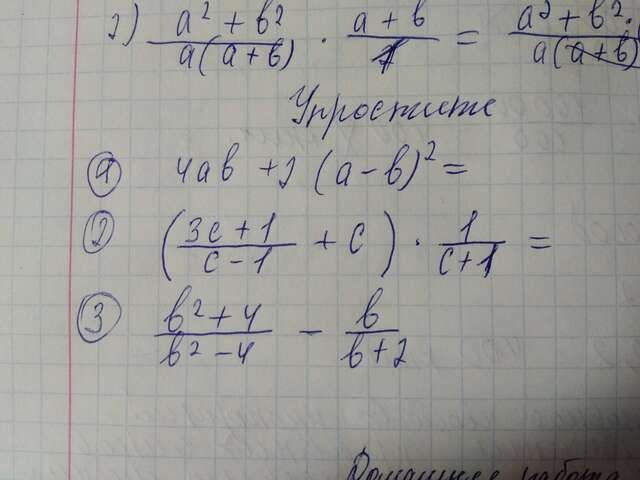 2) (a² + b²)/(a(a+b)) · (a+b)/1 = (a² + b²)/(a(a+b))
Упростите
① 4ab + 2(a-b)² =
② ((3c+1)/(c-1) + c) · 1/(c+1) =
③ (b²+4)/(b²-4) - b/(b+2)
Домашнее работа